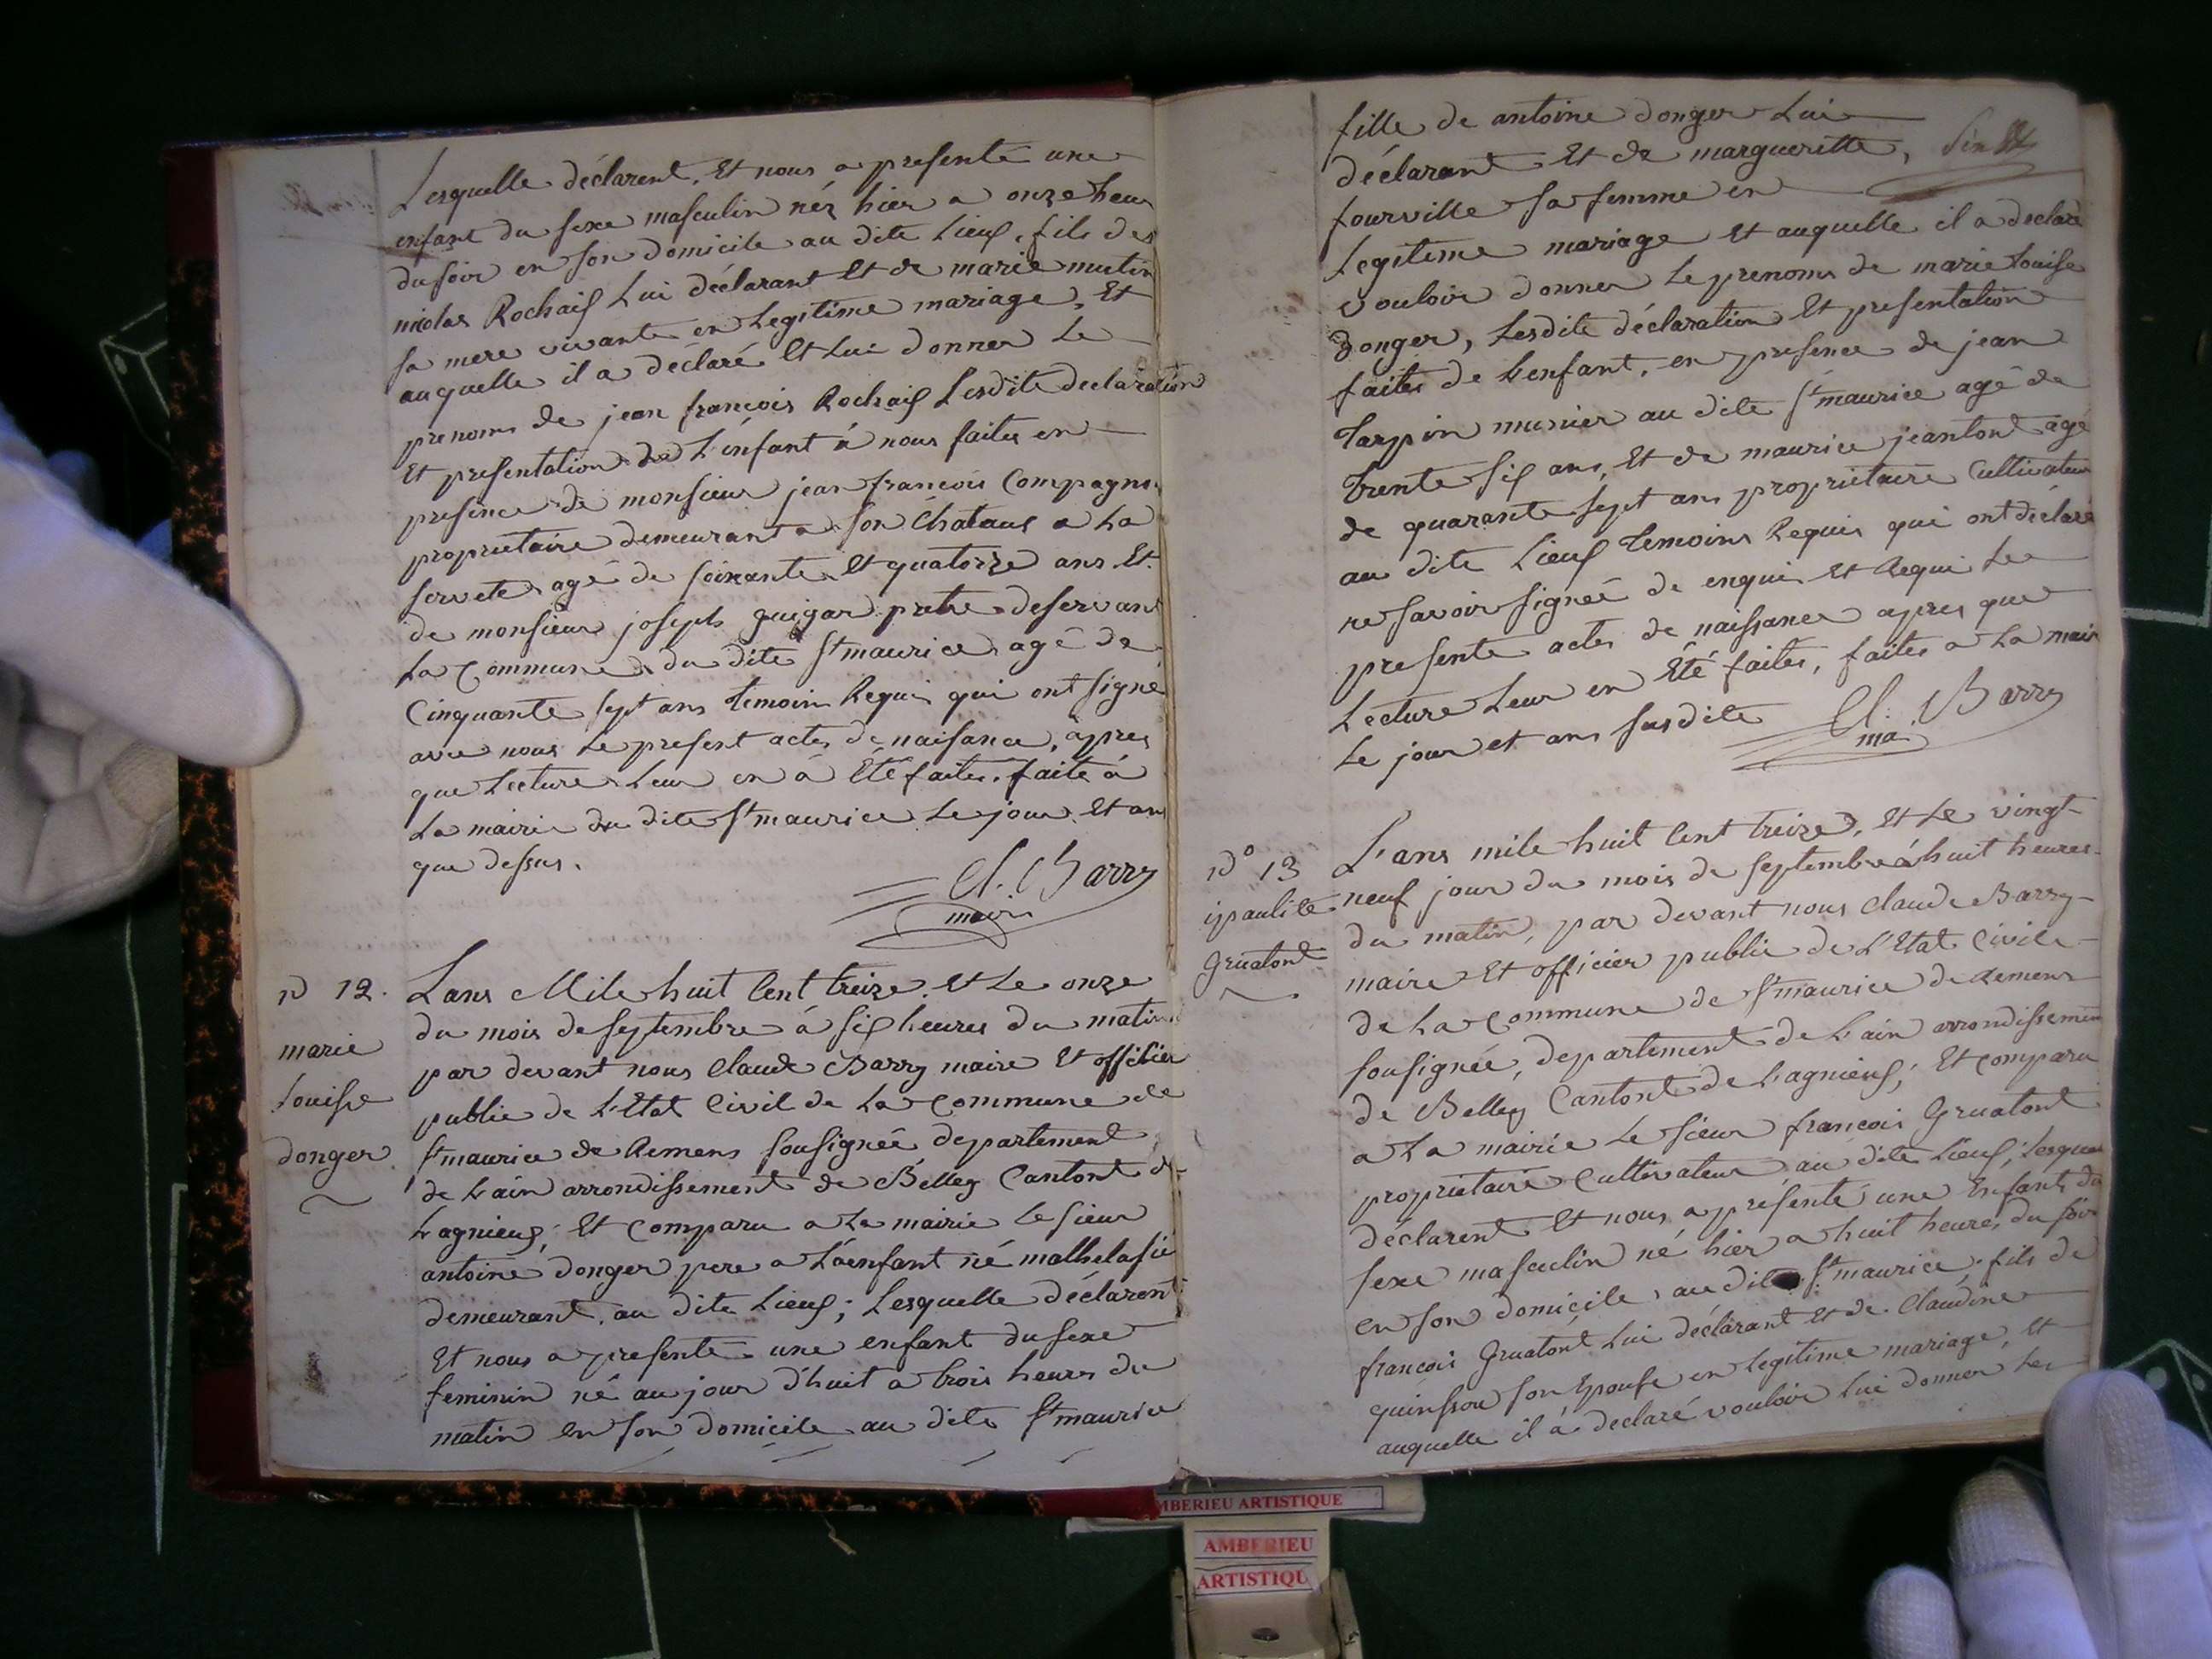 Lesquelle déclarent, Et nous a presenté une
enfant du sexe masculin néz hier a onze heur
du soir en son domicile au dite Lieux, fils des
nicolas Rochaix Lui déclarant Et de marie mutin
sa mere vivante en Legitime mariage, Et
auquelle il a déclaré Et Lui donner Le
prenoms de jean françois Rochaix Lesdite declaration
Et presentation de L'énfant à nous faites en
presence de monsieur jean francois Compagnon
proprietaire demeurant a son Chataux a La
servete agé de soixante Et quatorze ans Et
de monsieur joseph guigar pretre deservant
La Commune du dite St maurice agé de
Cinquante sept ans temoin Requis qui ont signé
avec nous Le present actes de naisance, apres
que Lecture Leur en à Eté faites. faite à
La mairie du dite St maurice Le jour Et an
que dessus.
Cl. Barry
maire
n 12.
marie
Louise
donger
Lans Mile huit Cent treize. Et Le onze
du mois de septembre à six heures du matin
par devant nous Claude Barry maire Et officier
public de L'Etat Civil de La Commune de
St maurice de Remens sousignée departement
de L'ain arrondissement de Belley Cantont de
Lagnieux; Et Comparu a La mairie Le sieur
antoine donger pere a Láenfant né
demeurant au dite Lieux; Lesquelle déclarent
Et nous a presenté une enfant du sexe
feminin né au jour d'huit a trois heures du
matin en son domicile au dite St maurice
fille de antoine donger Lui
déclarant Et de margueritte,
fourville sa femme en
Legitime mariage Et auquelle il a declaré
vouloir donner Le prenoms de marie Louise
donger, Lesdite déclaration Et presentation
faites de L'enfant, en presence de jean
Tarpin munier au dite St maurice agé de
trente six ans, Et de maurice jeantont agé
de quarante sept ans proprietaire Cultivateur
au dite Lieux temoins Requis qui ont déclaré
ne savoir signée de enquis Et Requi Le
presente actes de naissance apres que
Lecture Leur en Eté faites, faites a La mairi
Le jour et ans susdite
Cl. Barry
mai
No 13
ipaulite
Gruatont
L'ans mile huit Cent treize, Et Le vingt
neuf jour du mois de septembre à huit heures
du matin, par devant nous Claude Barry
maire Et officier public de L'Etat Civile
de La Commune de St maurice de Remens
sousignée, departement de L'ain arrondissement
de Belley Cantont de Lagnieux; Et Comparu
a La mairie Le sieur francois Gruatont
proprietaire Cultivateur au dite Lieux; Lesquel
déclarent Et nous a presenté une Enfant du
sexe masculin né hier a huit heure du soir
en son domicile au dite St maurice, fils de
francois Gruatont Lui déclarant Et de Claudine
quinsson son Epouse en Legitime mariage, Et
auquelle il à declaré vouloir Lui donner Les
AMBERIEU ARTISTIQUE
AMBERIEU
ARTISTIQU